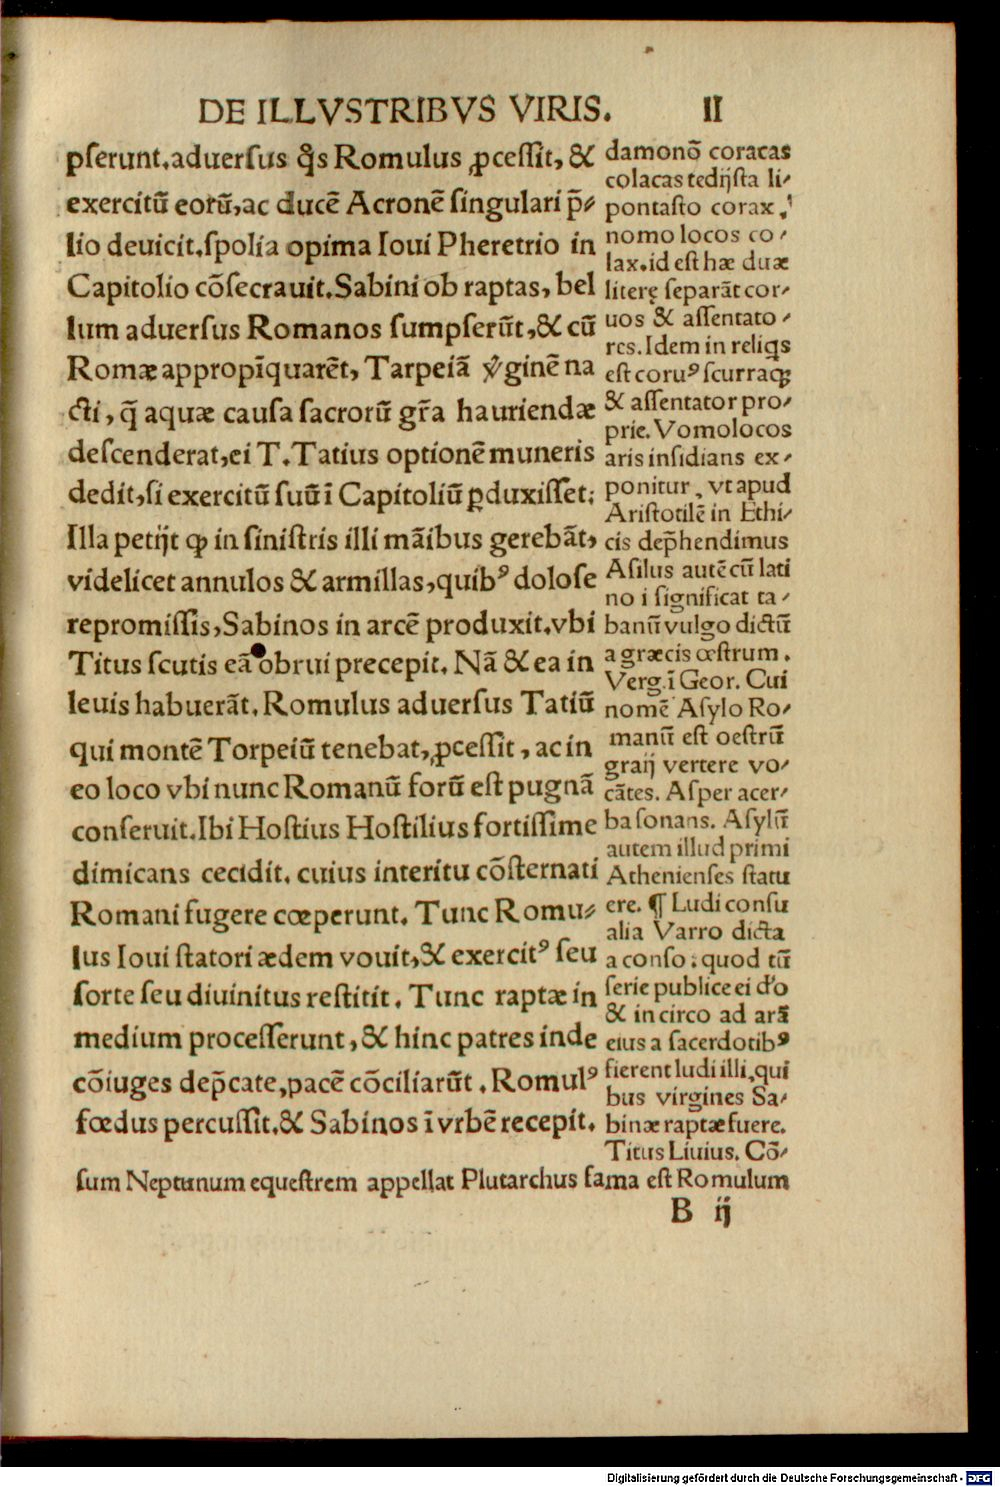 DE ILLVSTRIBVS VIRIS. II
pſerunt.aduerſus q̄s Romulus ꝓceſſit, &
exercitū eorū,ac ducē Acronē ſingulari p̄⸗
lio deuicit.ſpolia opima Ioui Pheretrio in
Capitolio cōſecrauit.Sabini ob raptas, bel
lum aduerſus Romanos ſumpſerūt,& cū
Romæ appropīquarēt, Tarpeiā ꝟginē na
cti, q̄ aquæ cauſa ſacrorū gr̄a hauriendæ
deſcenderat,ei T.Tatius optionē muneris
dedit,ſi exercitū ſuū ī Capitoliū ꝑduxiſſet;
Illa petijt ꝙ in ſiniſtris illi māibus gerebāt,
videlicet annulos & armillas,quibꝰ doloſe
repromiſſis,Sabinos in arcē produxit.vbi
Titus ſcutis eā obrui precepit. Nā & ea in
leuis habuerāt. Romulus aduerſus Tatiū
qui montē Torpeiū tenebat,ꝓceſſit, ac in
eo loco vbi nunc Romanū forū eſt pugnā
conſeruit.Ibi Hoſtius Hoſtilius fortiſſime
dimicans cecidit. cuius interitu cōſternati
Romani fugere cœperunt. Tunc Romu⸗
lus Ioui ſtatori ædem vouit,& exercitꝰ ſeu
ſorte ſeu diuinitus reſtitit. Tunc raptæ in
medium proceſſerunt,& hinc patres inde
cōiuges dep̄cate,pacē cōciliarūt. Romulꝰ
fœdus percuſſit.& Sabinos ī vrbē recepit.
damonō coracas
colacas tedijſta li⸗
pontaſto corax,
nomo locos co⸗
lax.id eſt hæ duæ
literę ſeparāt cor⸗
uos & aſſentato⸗
res.Idem in reliq̄s
eſt coruꝰ ſcurraqꝫ
& aſſentator pro⸗
prie.Vomolocos
aris inſidians ex⸗
ponitur, vt apud
Ariſtotilē in Ethi⸗
cis dep̄hendimus
Aſilus autē cū lati
no i ſignificat ta⸗
banū vulgo dictū
a græcis œſtrum.
Verg.ī Geor. Cui
nomē Aſylo Ro⸗
manū eſt oeſtrū
graij vertere vo⸗
cātes. Aſper acer⸗
ba ſonans. Aſylū
autem illud primi
Athenienſes ſtatu
ere. ¶ Ludi conſu
alia Varro dicta
a conſo: quod tū
ſerie publice ei d'o
& in circo ad arā
eius a ſacerdotibꝰ
fierent ludi illi,qui
bus virgines Sa⸗
binæ raptæ fuere.
Titus Liuius. Cō⸗
ſum Neptunum equeſtrem appellat Plutarchus fama eſt Romulum
B ij
Digitalisierung gefördert durch die Deutsche Forschungsgemeinschaft - DFG